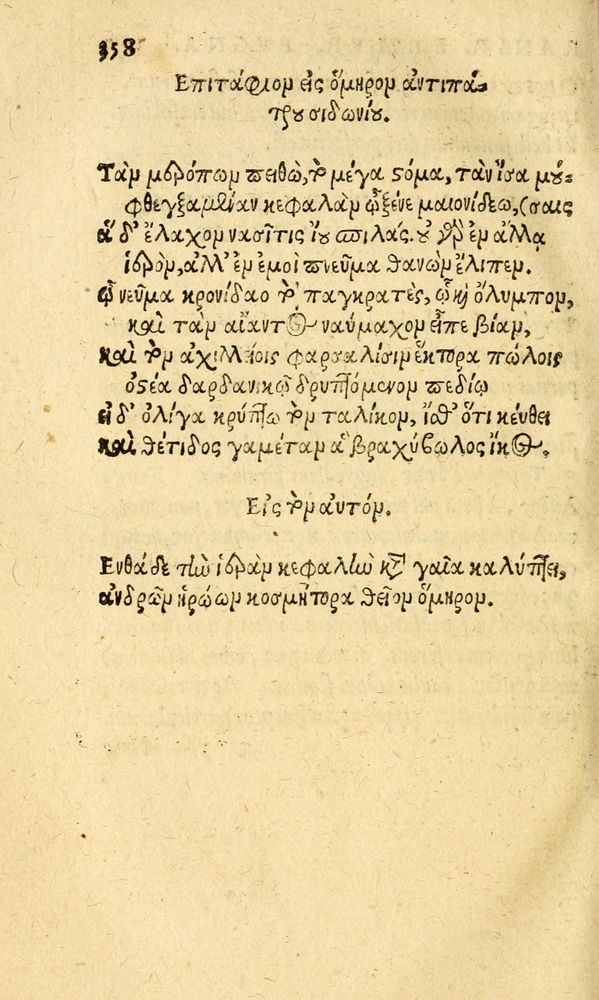 358
Επιτάφιον εἰς ὅμηρον ἀντιπά-
τρου σιδωνίου.
Τὰν μερόπων πειθὼ, τὸ μέγα στόμα, τὰν ἴσα μού-
φθεγξαμέναν κεφαλὰν ὦ ξένε μαιονίδεω, (σαις
ἅδ' ἔλαχον νασῖτις ἴου σπιλάς. οὐ γὰρ ἐν ἄλλᾳ
ἱερὸν, ἀλλ' ἐν ἐμοὶ πνεῦμα θανὼν ἔλιπεν.
ᾧ νεῦμα κρονίδαο τὸ παγκρατὲς, ᾧ καὶ ὄλυμπον,
καὶ τὰν αἴαντος ναύμαχον εἶπε βίαν,
καὶ τὸν ἀχιλλείοις φαρσαλίσιν ἕκτορα πώλοις
ὀστέα δαρδανικῷ δρυπτόμενον πεδίῳ
εἰ δ' ὀλίγα κρύπτω τὸν ταλίκον, ἴσθ' ὅτι κεύθει
καὶ θέτιδος γαμέταν ἁ βραχύβωλος ἴκος.
Εἰς τὸν αυτόν.
Ενθάδε τὴν ἱερὰν κεφαλὴν κατὰ γαῖα καλύπτει,
ἀνδρῶν ἡρώων κοσμήτορα θεῖον ὅμηρον.